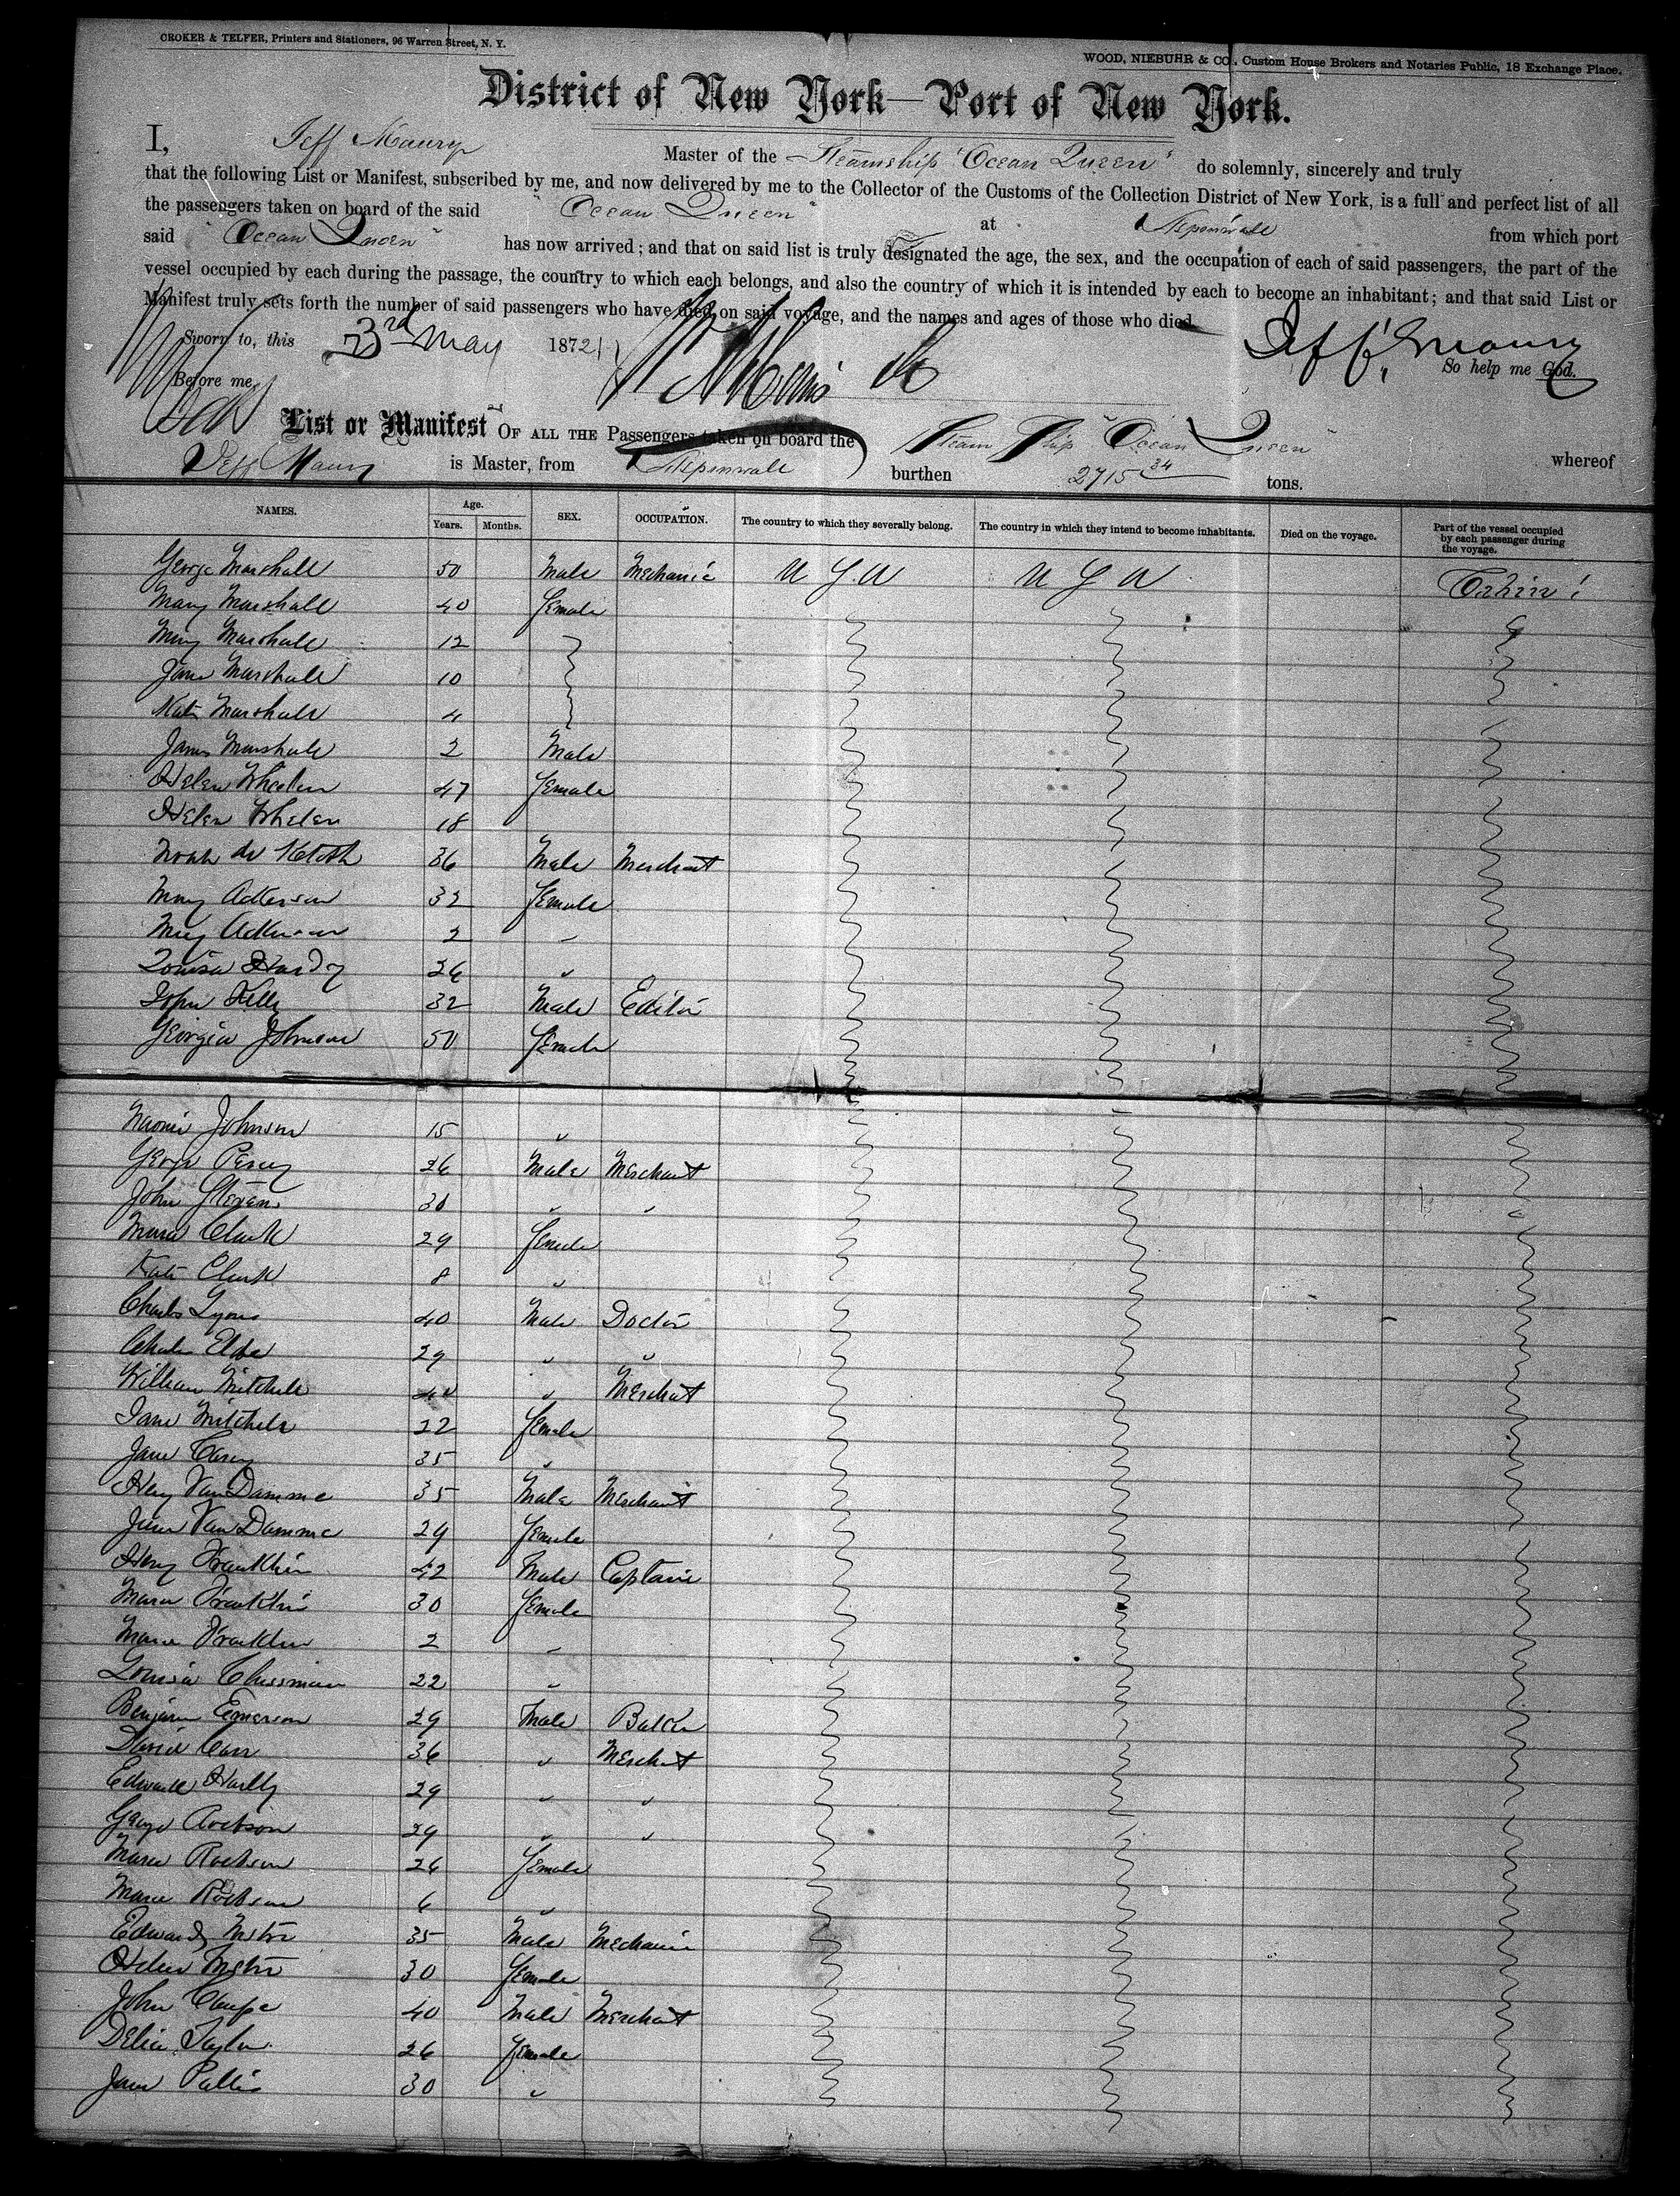 CROKER & TELFER, Printers and Stationers, 96 Warren Street, N. Y.
WOOD, NIEBUHR & CO., Custom House Brokers and Notaries Public, 18 Exchange Place.
District of New York—Port of New York.
I, Jeff Maury Master of the Steamship "Ocean Queen" do solemnly, sincerely and truly
that the following List or Manifest, subscribed by me, and now delivered by me to the Collector of the Customs of the Collection District of New York, is a full and perfect list of all
the passengers taken on board of the said "Ocean Queen" at Aspinwall from which port
said "Ocean Queen" has now arrived; and that on said list is truly designated the age, the sex, and the occupation of each of said passengers, the part of the
vessel occupied by each during the passage, the country to which each belongs, and also the country of which it is intended by each to become an inhabitant; and that said List or
Manifest truly sets forth the number of said passengers who have died on said voyage, and the names and ages of those who died.
Sworn to, this 3rd May 1872 Jeff. Maury
So help me God.
Before me,
List or Manifest OF ALL THE Passengers taken on board the Steam Ship "Ocean Queen" whereof
Jeff Maury is Master, from Aspinwall burthen 2715 34 tons.
NAMES. Age. Years. Months. SEX. OCCUPATION. The country to which they severally belong. The country in which they intend to become inhabitants. Died on the voyage. Part of the vessel occupied by each passenger during the voyage.
George Marshall 50 Male Mechanic U S A U S A Cabin
Mary Marshall 40 Female
Mary Marshall 12
Jane Marshall 10
Kate Marshall 4
James Marshall 2 Male
Helen Whelen 47 Female
Helen Whelen 18
Noah 36 Male Merchant
Mary Adkerson 32 Female
Mary Adkerson 2 "
Louisa Hardy 26 "
John Kelly 32 Male Editor
Georgia Johnson 50 Female
Naomi Johnson 15 "
George Percy 26 Male Merchant
John Stevens 30 " "
Maria Clark 29 Female
Kate Clark 8 "
Charles Lyons 40 Male Doctor
Charles 29 " "
William Mitchell 40 " Merchant
Jane Mitchell 22 Female
Jane 35 "
Henry Van Damme 35 Male Merchant
Jane Van Damme 29 Female
Henry Franklin 42 Male Captain
Maria Franklin 30 Female
Maria Franklin 2 "
Louisa 22 "
Benjamin Emerson 29 Male Baker
David Carr 36 " Merchant
Edward 29 " "
George 29 " "
Maria 26 Female
Maria 6 "
Edward 35 Male Mechanic
Helen 30 Female
John 40 Male Merchant
Delia Taylor 26 Female
Jane 30 "